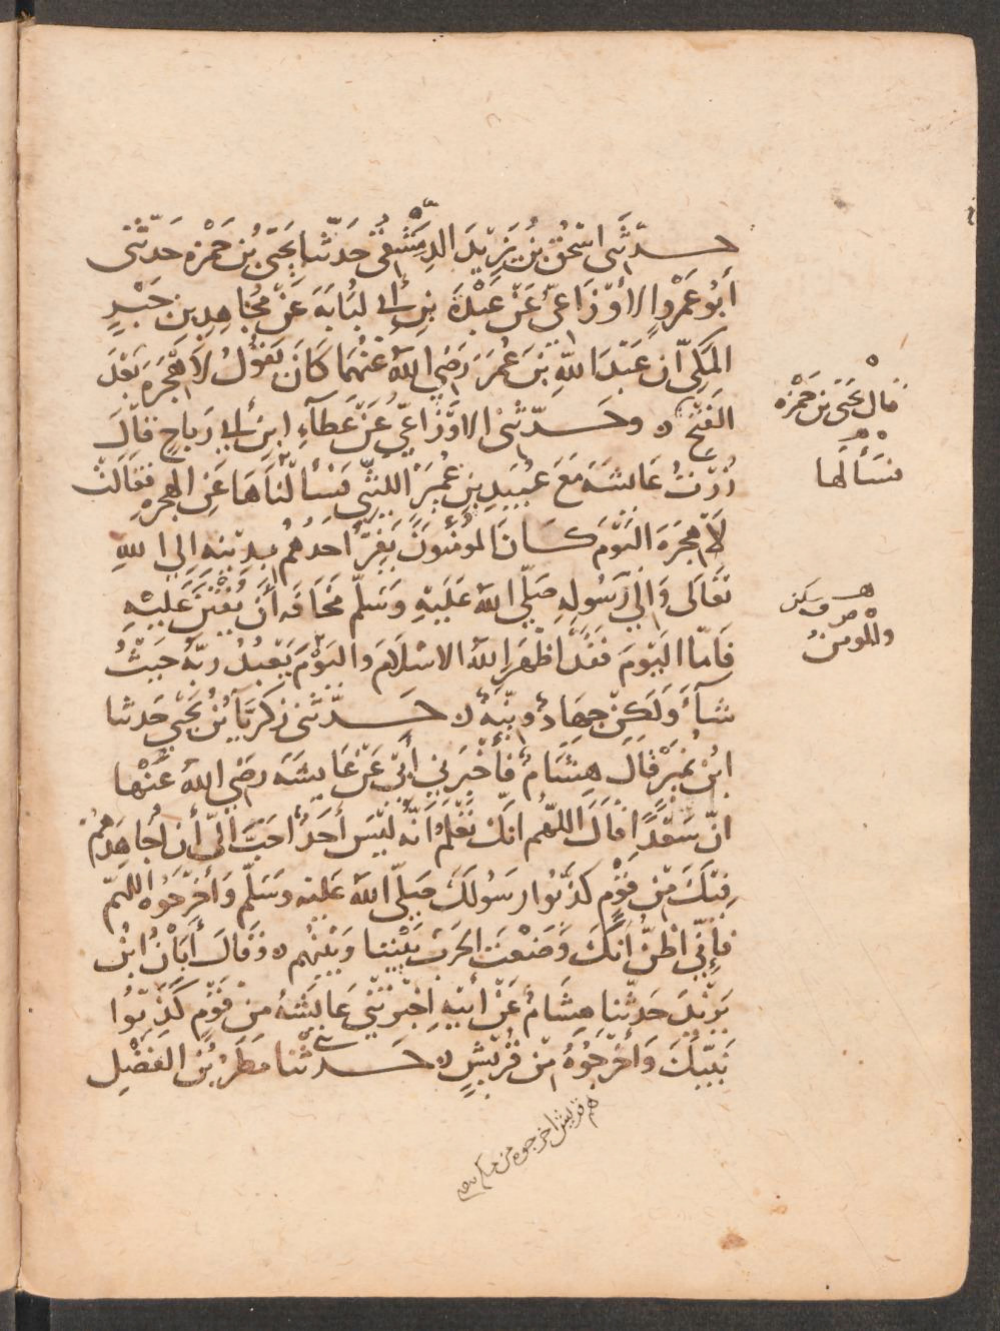 حدثني اسحق بن يزيد الدمشقي حدثنا يحيى بن حمزه حدثني
أبو عمرو الأوزاعي عن عبدة بن أبي لبابة عن مجاهد بن جبر
المكي أن عبد الله بن عمر رضي الله عنهما كان يقول لا هجره بعد
الفتح ه وحدثني الاوزاعي عن عطاء ابن أبي رباح قال
زرت عائشة مع عبيد بن عمير الليثي فسألناها عن الهجره فقالت
لا هجرة اليوم كان المؤمنون يفر أحدهم بدينه إلى الله
تعالى وإلى رسوله صلى الله عليه وسلم مخافه أن يفتن عليه
فاما اليوم فقد أظهر الله الاسلام واليوم يعبد ربه حيث
شاء ولكن جهاد ونية ه حدثني زكرياء بن يحيى حدثنا
ابن نمير قال هشام فأخبرني أبي عن عايشه رضي الله عنها
ان سعدا قال اللهم انك تعلم أنه ليس أحد احب الي أن أجاهدهم
فيك من قوم كذبوا رسولك صلى الله عليه وسلم وأخرجوه اللهم
فإني اظن أنك وضعت الحرب بيننا وبينهم ه وقال أبان ابن
يزيد حدثنا هشام عن أبيه اخبرتني عايشه من قوم كذبوا
نبيك وأخرجوه من قريش ه حدثنا مطر بن الفضل
قال يحيى بن حمزه
فسألها
والمومن
هم قريش اخرجوه من